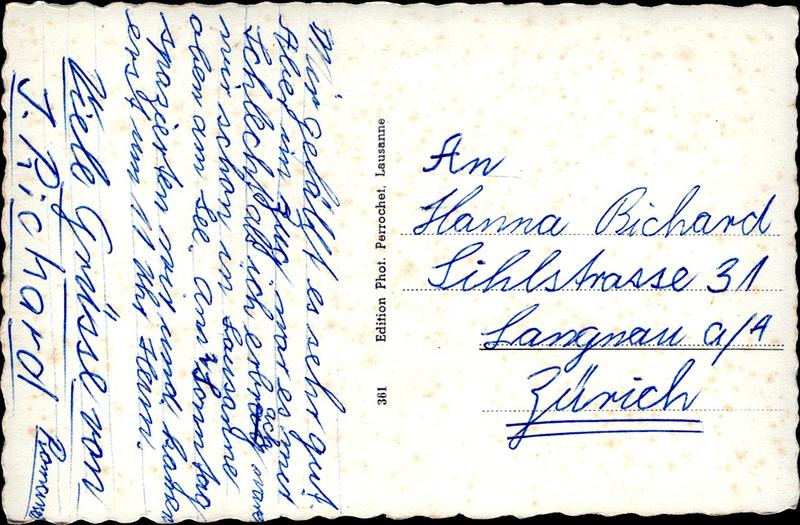 Mir gefällt es sehr gut.
Aber im Zug war es mir
schlecht, dass ich erbrach
wir schon in Lausanne
oben am See. Am Sonntag
spazierten wir und kamen
erst um 11 Uhr heim.
Viele Grüsse von
J. Richard
361 Edition Phot. Perrochet, Lausanne
An
Hanna Richard
Sihlstrasse 31
Langnau a/A
Zürich